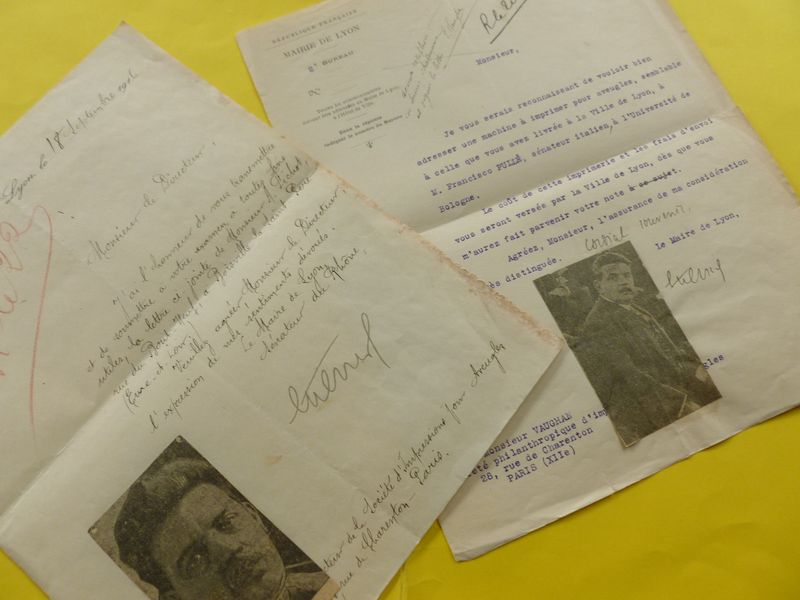 Lyon, le 18 Septembre 1916
Monsieur le Directeur,
J'ai l'honneur de vous transmettre
et de soumettre à votre examen à toutes fins
utiles, la lettre ci-jointe de Monsieur J. Pichot,
rue du
(Eure-et-Loir)
Veuillez agréer, Monsieur le Directeur,
l'expression de mes sentiments dévoués.
Le Maire de Lyon,
Sénateur du Rhône,
teur de la Société d'Impressions pour Aveugles
rue de Charenton - Paris.
RÉPUBLIQUE FRANÇAISE
MAIRIE DE LYON
2e BUREAU
N°
Dans la réponse
rappeler le numéro du Bureau
Monsieur,
Je vous serais reconnaissant de vouloir bien
adresser une machine à imprimer pour aveugles, semblable
à celle que vous avez livrée à la Ville de Lyon, à
M. Francisco PULLÈ, sénateur italien, à l'Université de
Bologne.
Le coût de cette imprimerie et les frais d'envoi
vous seront versés par la Ville de Lyon, dès que vous
m'aurez fait parvenir votre note à ce sujet.
Agréez, Monsieur, l'assurance de ma considération
ès distinguée.
Cordial souvenir,
Le Maire de Lyon,
onsieur VAUGHAN
été philanthropique d'imp
gles
28, rue de Charenton
PARIS (XIIe)